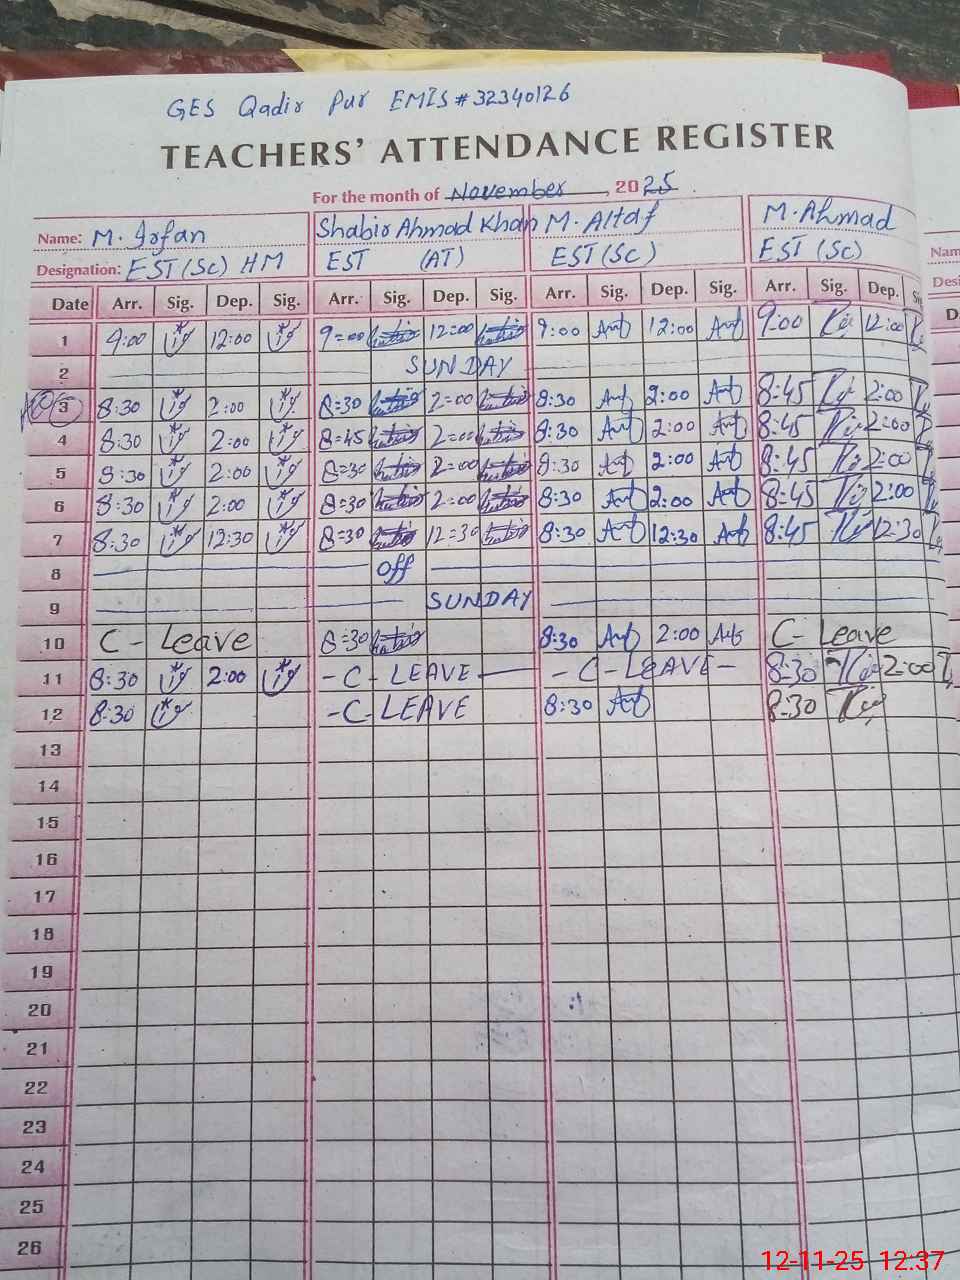 GES Qadir Pur EMIS # 32340126
TEACHERS' ATTENDANCE REGISTER
For the month of November, 2025
Name: M. Irfan Shabir Ahmad Khan M. Altaf M. Ahmad Nam
Designation: EST (Sc) HM EST (AT) EST (Sc) EST (Sc) Desi
Date Arr. Sig. Dep. Sig. Arr. Sig. Dep. Sig. Arr. Sig. Dep. Sig. Arr. Sig. Dep. Si D
1 9:00 12:00 9=00 12=00 9:00 12:00 9:00 12:00
2 SUNDAY
3 8:30 2:00 8=30 2=00 8:30 2:00 8:45 2:00
4 8:30 2:00 8=45 2=00 8:30 2:00 8:45 2:00
5 8:30 2:00 8=30 2=00 8:30 2:00 8:45 2:00
6 8:30 2:00 8=30 2=00 8:30 2:00 8:45 2:00
7 8:30 12:30 8=30 12=30 8:30 12:30 8:45 12:30
8 Off
9 SUNDAY
10 C - Leave 8=30 8:30 2:00 C - Leave
11 8:30 2:00 - C - LEAVE - C - LEAVE - 8:30 2:00
12 8:30 - C - LEAVE 8:30 8:30
13
14
15
16
17
18
19
20
21
22
23
24
25
26
12-11-25 12:37